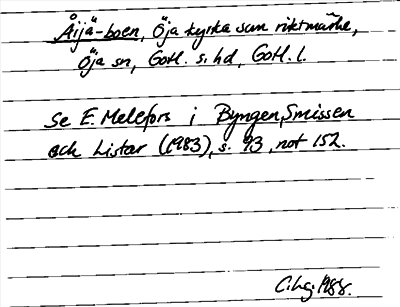 Åijä-boen, Öja kyrka som riktmärke,
Öja sn, Gotl. s. hd, Gotl. l.
Se E. Melefors i Byngen, Smissen
och Listar (1983), s. 93, not 152.
C. Lg. 1988.